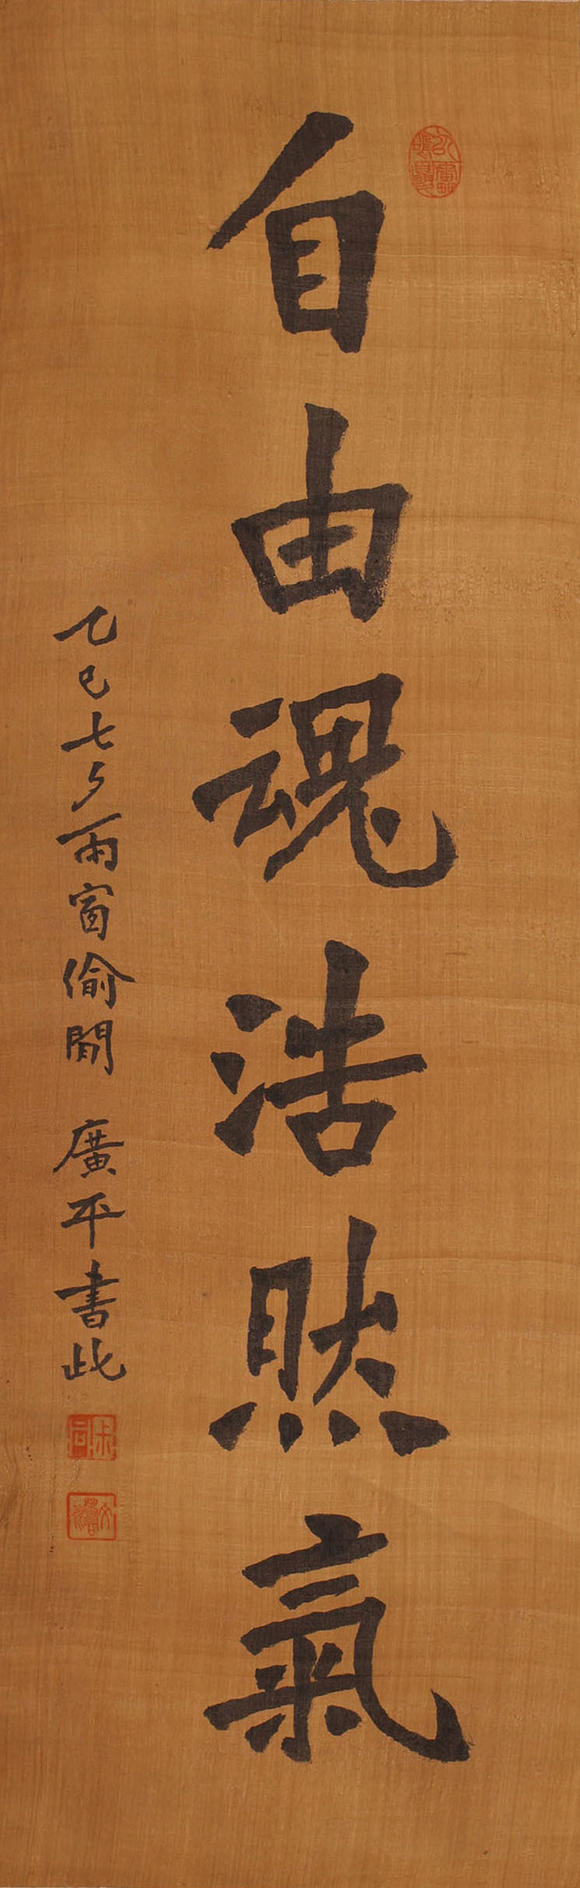 自由魂浩然氣
乙巳七夕雨窗偷閒 廣平書此